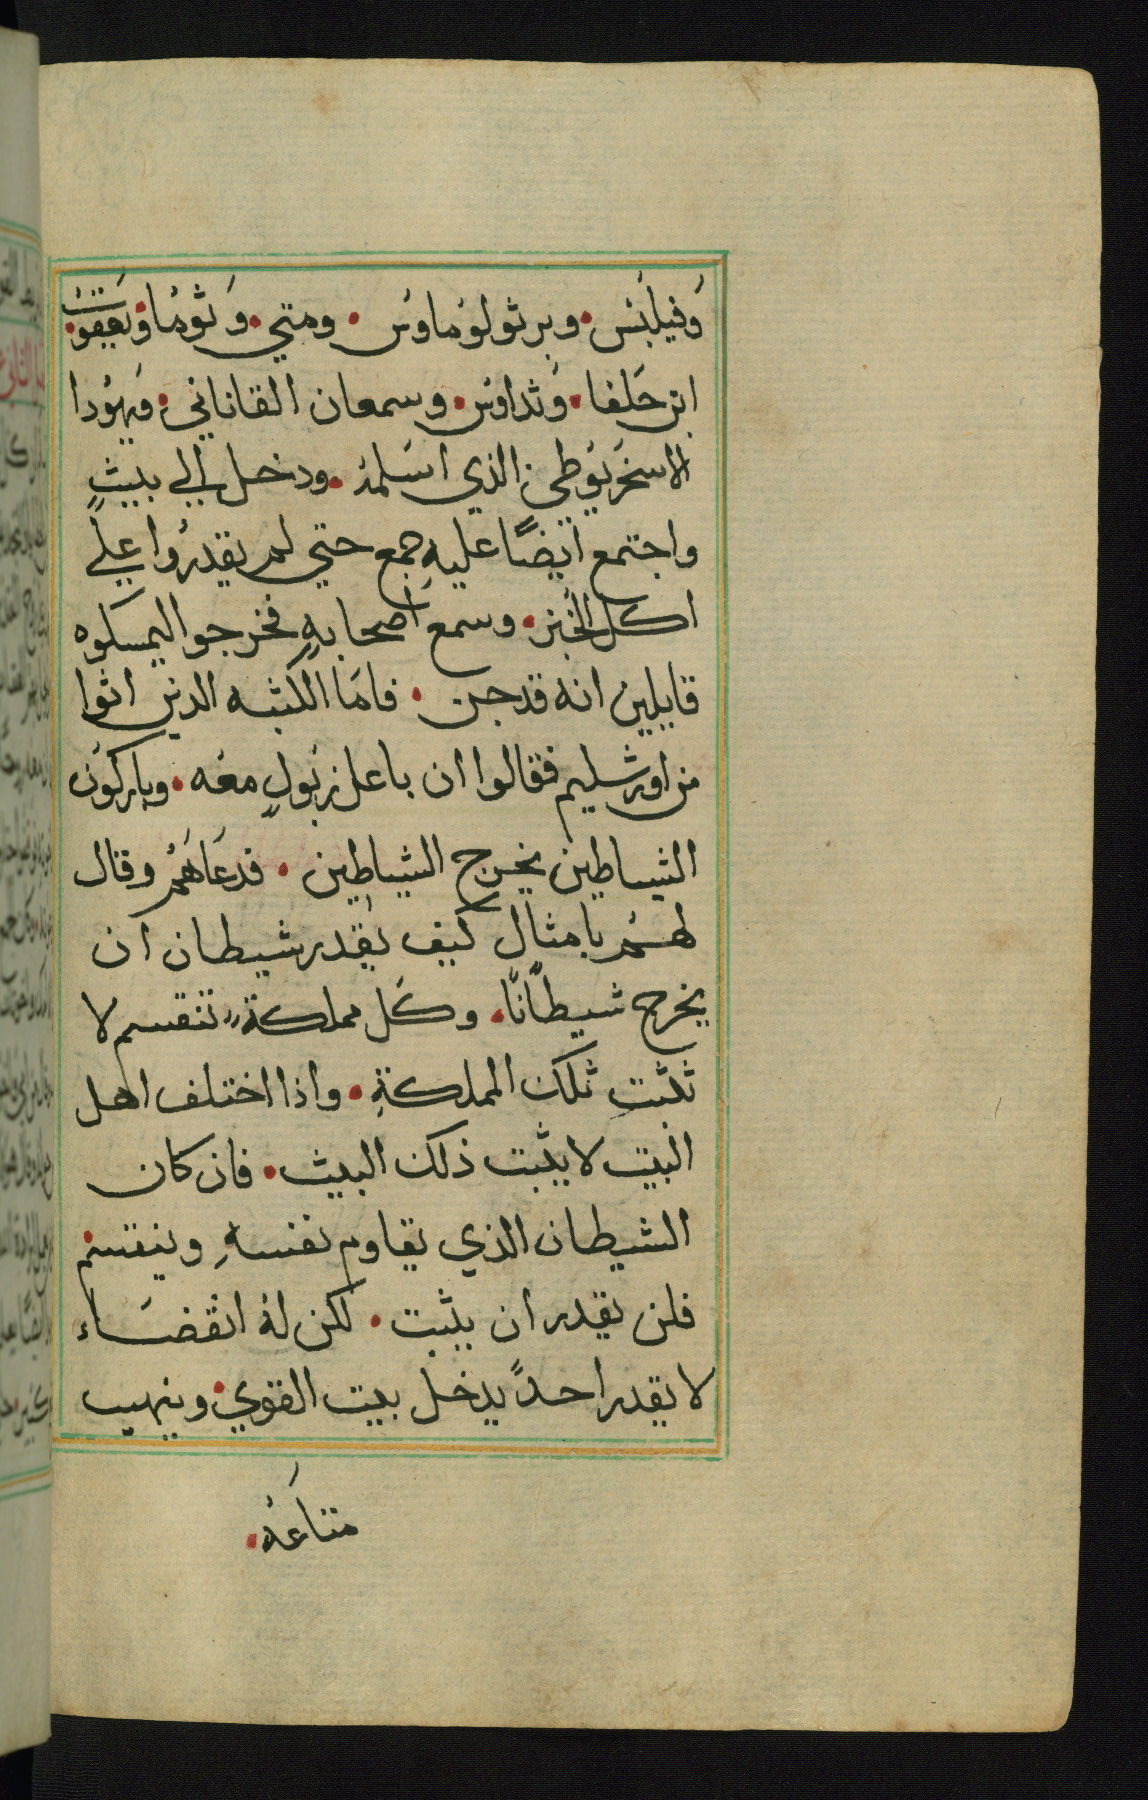 وَفيلبَس • وبرثولوُماوسُ • ومتي • وَثومُا • وَيعقوُبُ
ابن حَلفا • وَثداوسُ • وسمعان القاناني • وَيهوُدا
الاسخَريوُطي • الذي اسَلمهُ • ودخل الي بيثٍ
واجتمع ايَضًا عليهِ جمع حتي لم يقدرُوا علي
اكل الخُبز • وسمع اَصحابهِ فخرجوا ليمسكوه
قايلين انه قد جن • فامَا الكثبه الدين اثوا
من اورشليم فقالوا ان باعلزبُولٍ معَه • وباركوُن
الشياطين يخرج الشياطين • فدعَاهَمُ وقال
لهُم بامثال كيف يقدر شيطان ان
يخرج شيطانًا • وكَل مملكةٍ تنقسم لا
تثبت ثلك المملكةِ • واذا اختلف اهل
البيت لا يثبت ذلك البيث • فان كان
الشيطان الذي يقاوم نفسهِ وينقسمُ
فلن يقدر ان يثبت • لكن لهُ انقضَاء
لا يقدر احدً يدخل بيت القوي • وينهب
متاعَهُ •